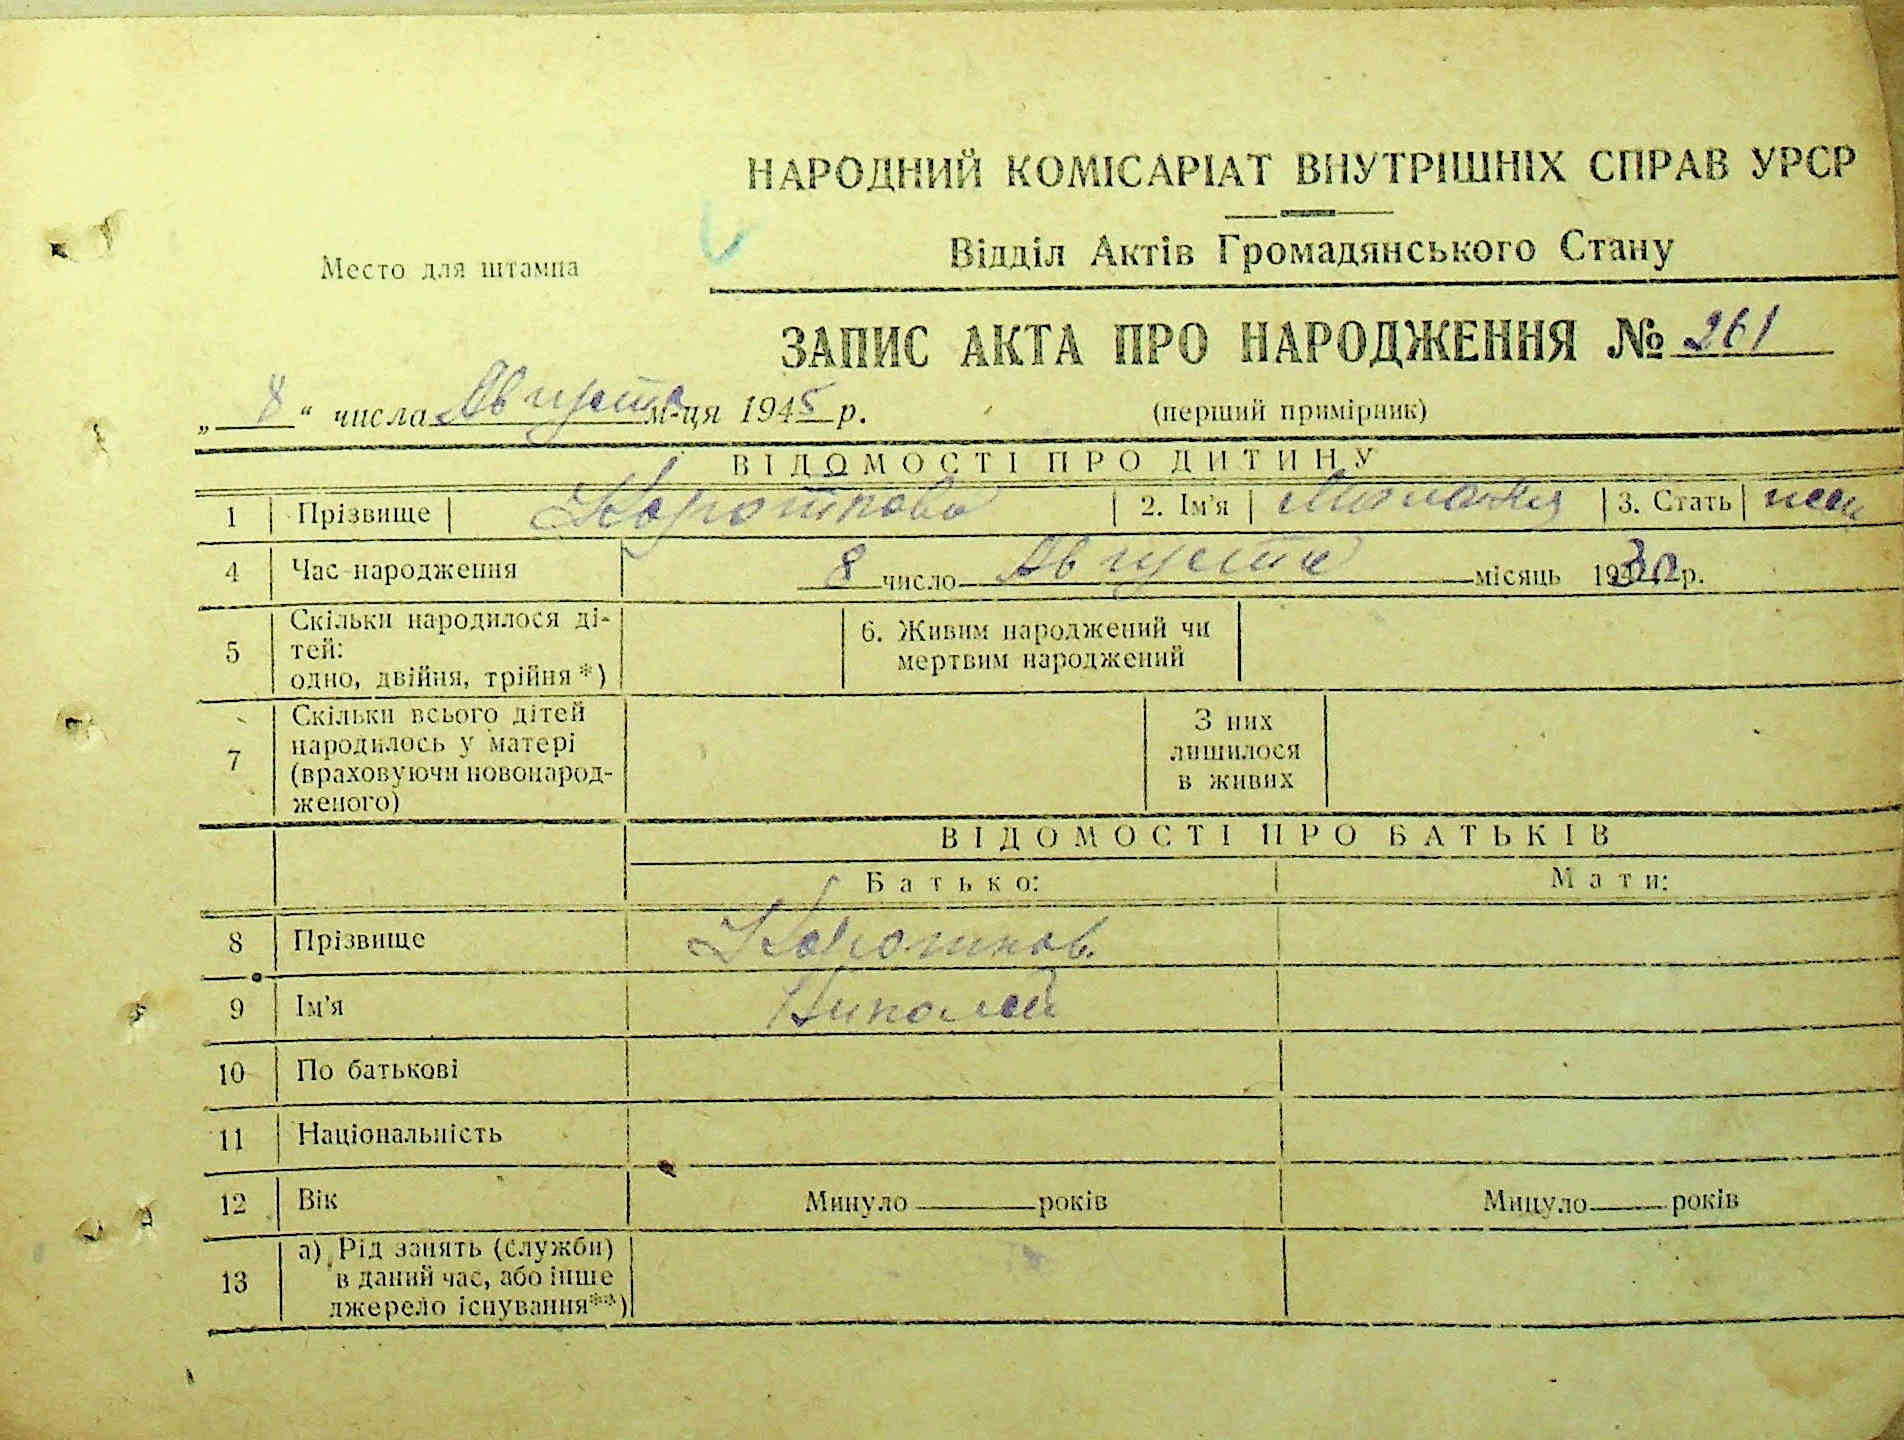 НАРОДНИЙ КОМІСАРІАТ ВНУТРІШНІХ СПРАВ УРСР
Відділ Актів Громадянського Стану
Место для штампа
ЗАПИС АКТА ПРО НАРОДЖЕННЯ № 261
„ 8 “ числа Августа м-ця 1945 р. (перший примірник)
ВІДОМОСТІ ПРО ДИТИНУ
1 Прізвище Короткова 2. Ім'я 3. Стать
4 Час народження 8 число Августа місяць 1930 р.
5 Скільки народилося ді-
тей:
одно, двійня, трійня *)
6. Живим народжений чи
мертвим народжений
7 Скільки всього дітей
народилось у матері
(враховуючи новонарод-
женого)
З них
лишилося
в живих
ВІДОМОСТІ ПРО БАТЬКІВ
Батько: Мати:
8 Прізвище Коротков.
9 Ім'я Николай
10 По батькові
11 Національність
12 Вік Минуло років Минуло років
13 а) Рід занять (служби)
в даний час, або інше
джерело існування**)